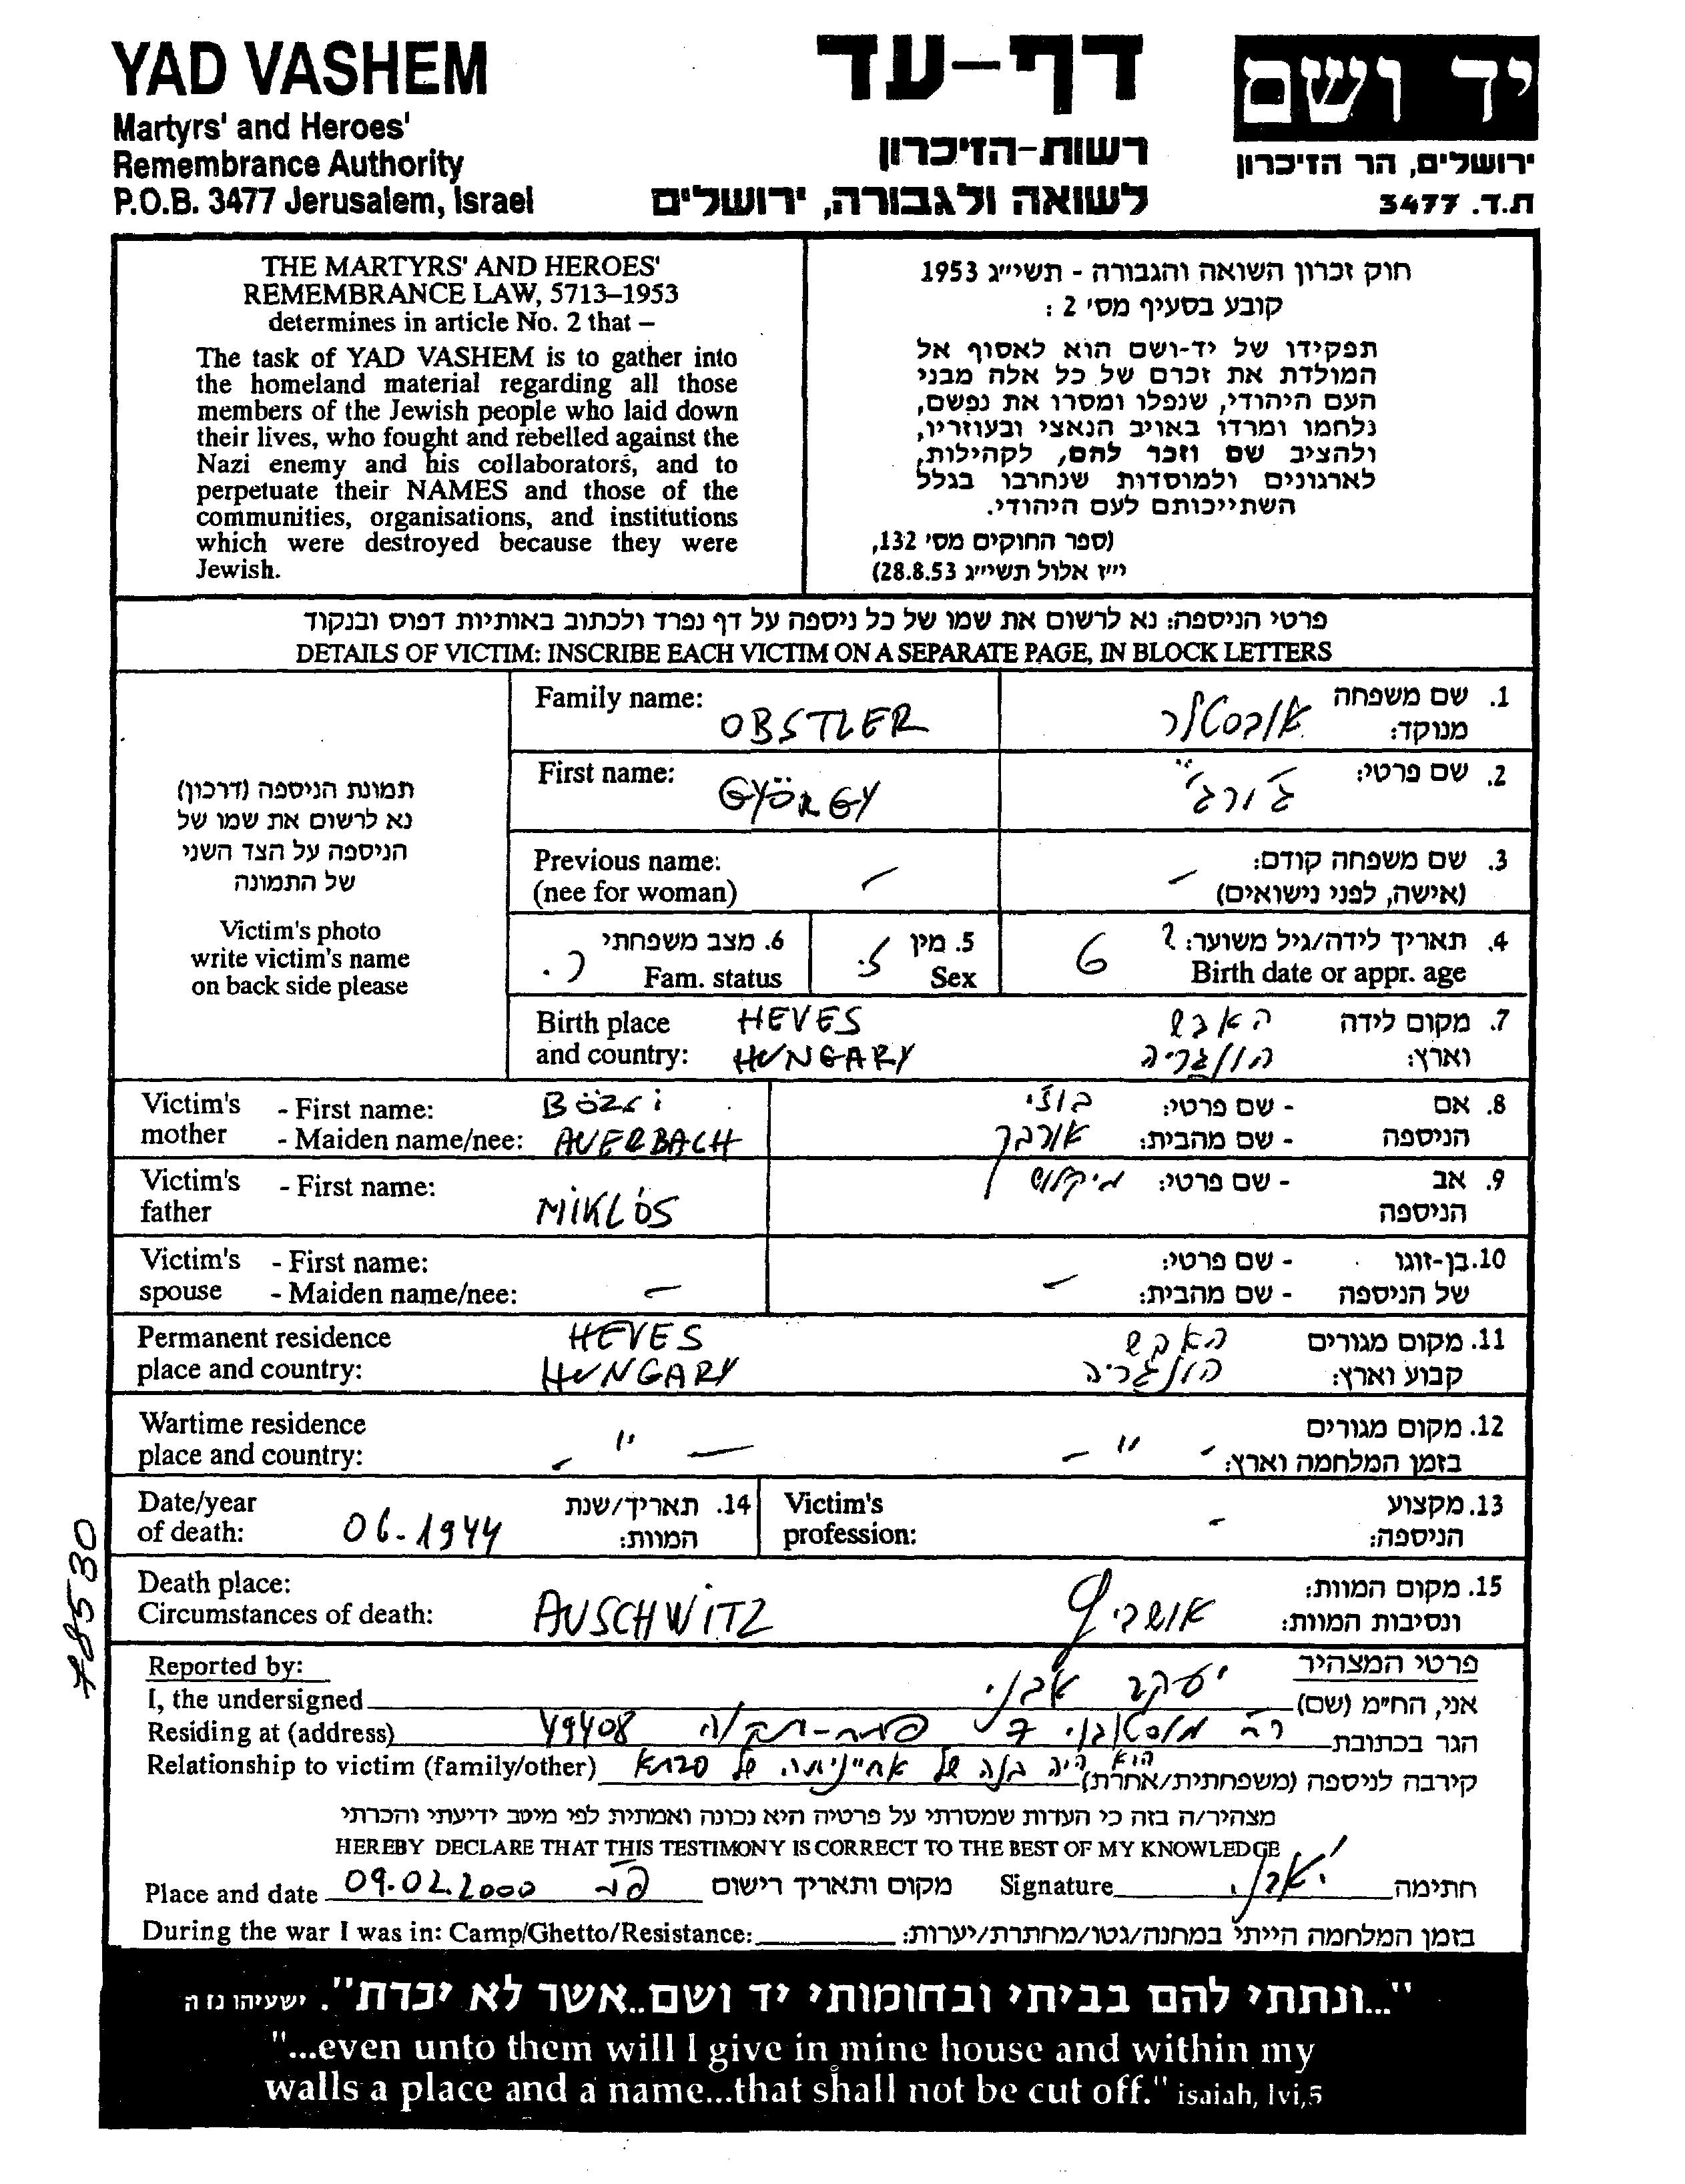 YAD VASHEM
Martyrs' and Heroes'
Remembrance Authority
P.O.B. 3477 Jerusalem, Israel
דף-עד
רשות-הזיכרון
לשואה ולגבורה, ירושלים
יד ושם
ירושלים, הר הזיכרון
ת.ד. 3477
THE MARTYRS' AND HEROES'
REMEMBRANCE LAW, 5713–1953
determines in article No. 2 that –
The task of YAD VASHEM is to gather into
the homeland material regarding all those
members of the Jewish people who laid down
their lives, who fought and rebelled against the
Nazi enemy and his collaborators, and to
perpetuate their NAMES and those of the
communities, organisations, and institutions
which were destroyed because they were
Jewish.
חוק זכרון השואה והגבורה - תשי״ג 1953
קובע בסעיף מס׳ 2 :
תפקידו של יד-ושם הוא לאסוף אל
המולדת את זכרם של כל אלה מבני
העם היהודי, שנפלו ומסרו את נפשם,
נלחמו ומרדו באויב הנאצי ובעוזריו,
ולהציב שם וזכר להם, לקהילות,
לארגונים ולמוסדות שנחרבו בגלל
השתייכותם לעם היהודי.
(ספר החוקים מס׳ 132,
י״ז אלול תשי״ג 28.8.53)
פרטי הניספה: נא לרשום את שמו של כל ניספה על דף נפרד ולכתוב באותיות דפוס ובנקוד
DETAILS OF VICTIM: INSCRIBE EACH VICTIM ON A SEPARATE PAGE, IN BLOCK LETTERS
תמונת הניספה (דרכון)
נא לרשום את שמו של
הניספה על הצד השני
של התמונה
Victim's photo
write victim's name
on back side please
Family name: OBSTLER
1. שם משפחה מנוקד: אובסטלר
First name: GYÖRGY
2. שם פרטי: ג׳ורג׳
Previous name: –
(nee for woman)
3. שם משפחה קודם: –
(אישה, לפני נישואים)
4. תאריך לידה/גיל משוער: ? 6
Birth date or appr. age
5. מין ז.
Sex
6. מצב משפחתי ר.
Fam. status
Birth place HEVES
and country: HUNGARY
7. מקום לידה האבש
וארץ: הונגריה
Victim's mother - First name: BÖZSI
- Maiden name/nee: AUERBACH
8. אם הניספה - שם פרטי: בוזי
- שם מהבית: אורבך
Victim's father - First name: MIKLÓS
9. אב הניספה - שם פרטי: מיקלוש
Victim's spouse - First name:
- Maiden name/nee: –
10. בן-זוגו של הניספה - שם פרטי:
- שם מהבית: –
Permanent residence HEVES
place and country: HUNGARY
11. מקום מגורים האבש
קבוע וארץ: הונגריה
Wartime residence
place and country: – " –
12. מקום מגורים
בזמן המלחמה וארץ: – " –
Date/year
of death: 06-1944
14. תאריך/שנת
המוות:
Victim's
profession: -
13. מקצוע
הניספה:
Death place:
Circumstances of death: AUSCHWITZ
15. מקום המוות:
ונסיבות המוות: אושביץ
78530
Reported by:
פרטי המצהיר
I, the undersigned יעקב אבני אני, הח״מ (שם)
Residing at (address) 49408 פתח-תקוה 7 רח׳ הגר בכתובת
Relationship to victim (family/other) הוא היה בנה של אחייניתה של סבתא קירבה לניספה (משפחתית/אחרת)
מצהיר/ה בזה כי העדות שמסרתי על פרטיה היא נכונה ואמתית לפי מיטב ידיעתי והכרתי
HEREBY DECLARE THAT THIS TESTIMONY IS CORRECT TO THE BEST OF MY KNOWLEDGE
Place and date 09.02.2000 פ״ת מקום ותאריך רישום Signature חתימה
During the war I was in: Camp/Ghetto/Resistance: בזמן המלחמה הייתי במחנה/גטו/מחתרת/יערות:
"...ונתתי להם בביתי ובחומותי יד ושם..אשר לא יכרת". ישעיהו נז ה
"...even unto them will I give in mine house and within my
walls a place and a name...that shall not be cut off." isaiah, lvi,5